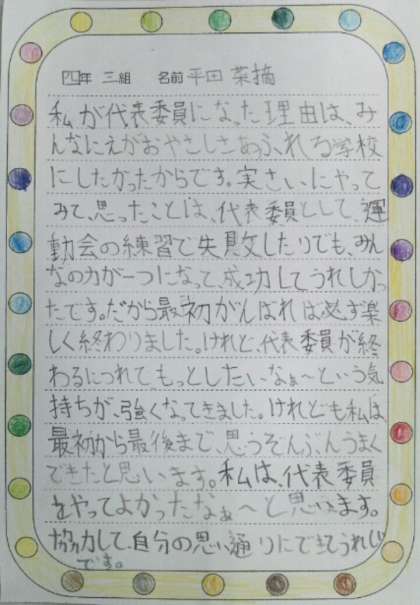 四年 三組 名前 平田 菜摘
私が代表委員になった理由は、み
んなにえがおやさしさあふれる学校
にしたかったからです。実さいにやって
みて、思ったことは、代表委員として、運
動会の練習で失敗したりでも、みん
なの力が一つになって、成功してうれしかっ
たです。だから最初がんばれば必ず楽
しく終わりました。けれど、代表委員が終
わるにつれてもっとしたいなぁ〜という気
持ちが、強くなってきました。けれども私は、
最初から最後まで、思うぞんぶんうまく
できたと思います。私は、代表委員
をやってよかったなぁ〜と思います。
協力して、自分の思い通りにできてうれしい
です。